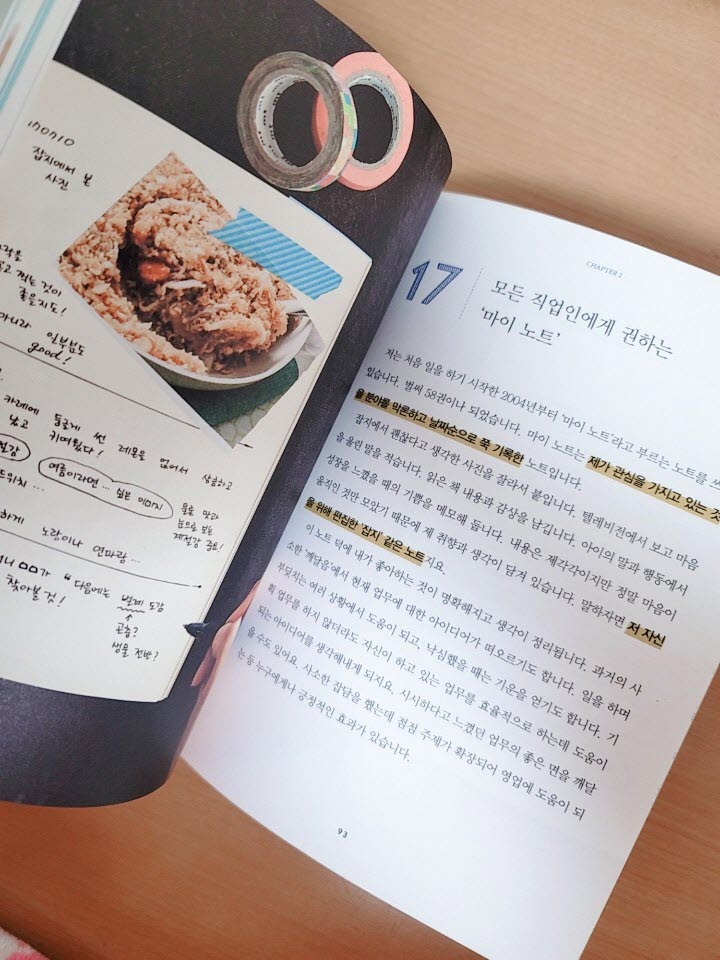 잡지에서 본
사진
좋을지도!
일부님도
good!
카레에 둥글게 썬 레몬을 얹어서 상큼하고
키여웠다!
여름이라면… 일본 이미지
노랑이나 연마랑…
"다음에는 벌레 도감
찾아볼 것!
곤충?
생물 전반?
CHAPTER 2
17
모든 직업인에게 권하는
'마이 노트'
저는 처음 일을 하기 시작한 2004년부터 '마이 노트'라고 부르는 노트를 쓰
있습니다. 벌써 58권이나 되었습니다. 마이 노트는 제가 관심을 가지고 있는 것
을 분야를 막론하고 날짜순으로 쭉 기록한 노트입니다.
잡지에서 괜찮다고 생각한 사진을 잘라서 붙입니다. 텔레비전에서 보고 마음
을 울린 말을 적습니다. 읽은 책 내용과 감상을 남깁니다. 아이의 말과 행동에서
성장을 느꼈을 때의 기쁨을 메모해 둡니다. 내용은 제각각이지만 정말 마음이
움직인 것만 모았기 때문에 제 취향과 생각이 담겨 있습니다. 말하자면 저 자신
을 위해 편집한 잡지 같은 노트지요.
이 노트 덕에 내가 좋아하는 것이 명확해지고 생각이 정리됩니다. 과거의 사
소한 깨달음에서 현재 업무에 대한 아이디어가 떠오르기도 합니다. 일을 하며
부딪치는 여러 상황에서 도움이 되고, 낙심했을 때는 기운을 얻기도 합니다. 기
획 업무를 하지 않더라도 자신이 하고 있는 업무를 효율적으로 하는데 도움이
되는 아이디어를 생각해내게 되지요. 시시하다고 느꼈던 업무의 좋은 면을 깨달
을 수도 있어요. 사소한 잡담을 했는데 점점 주제가 확장되어 영업에 도움이 되
는 등 누구에게나 긍정적인 효과가 있습니다.
93